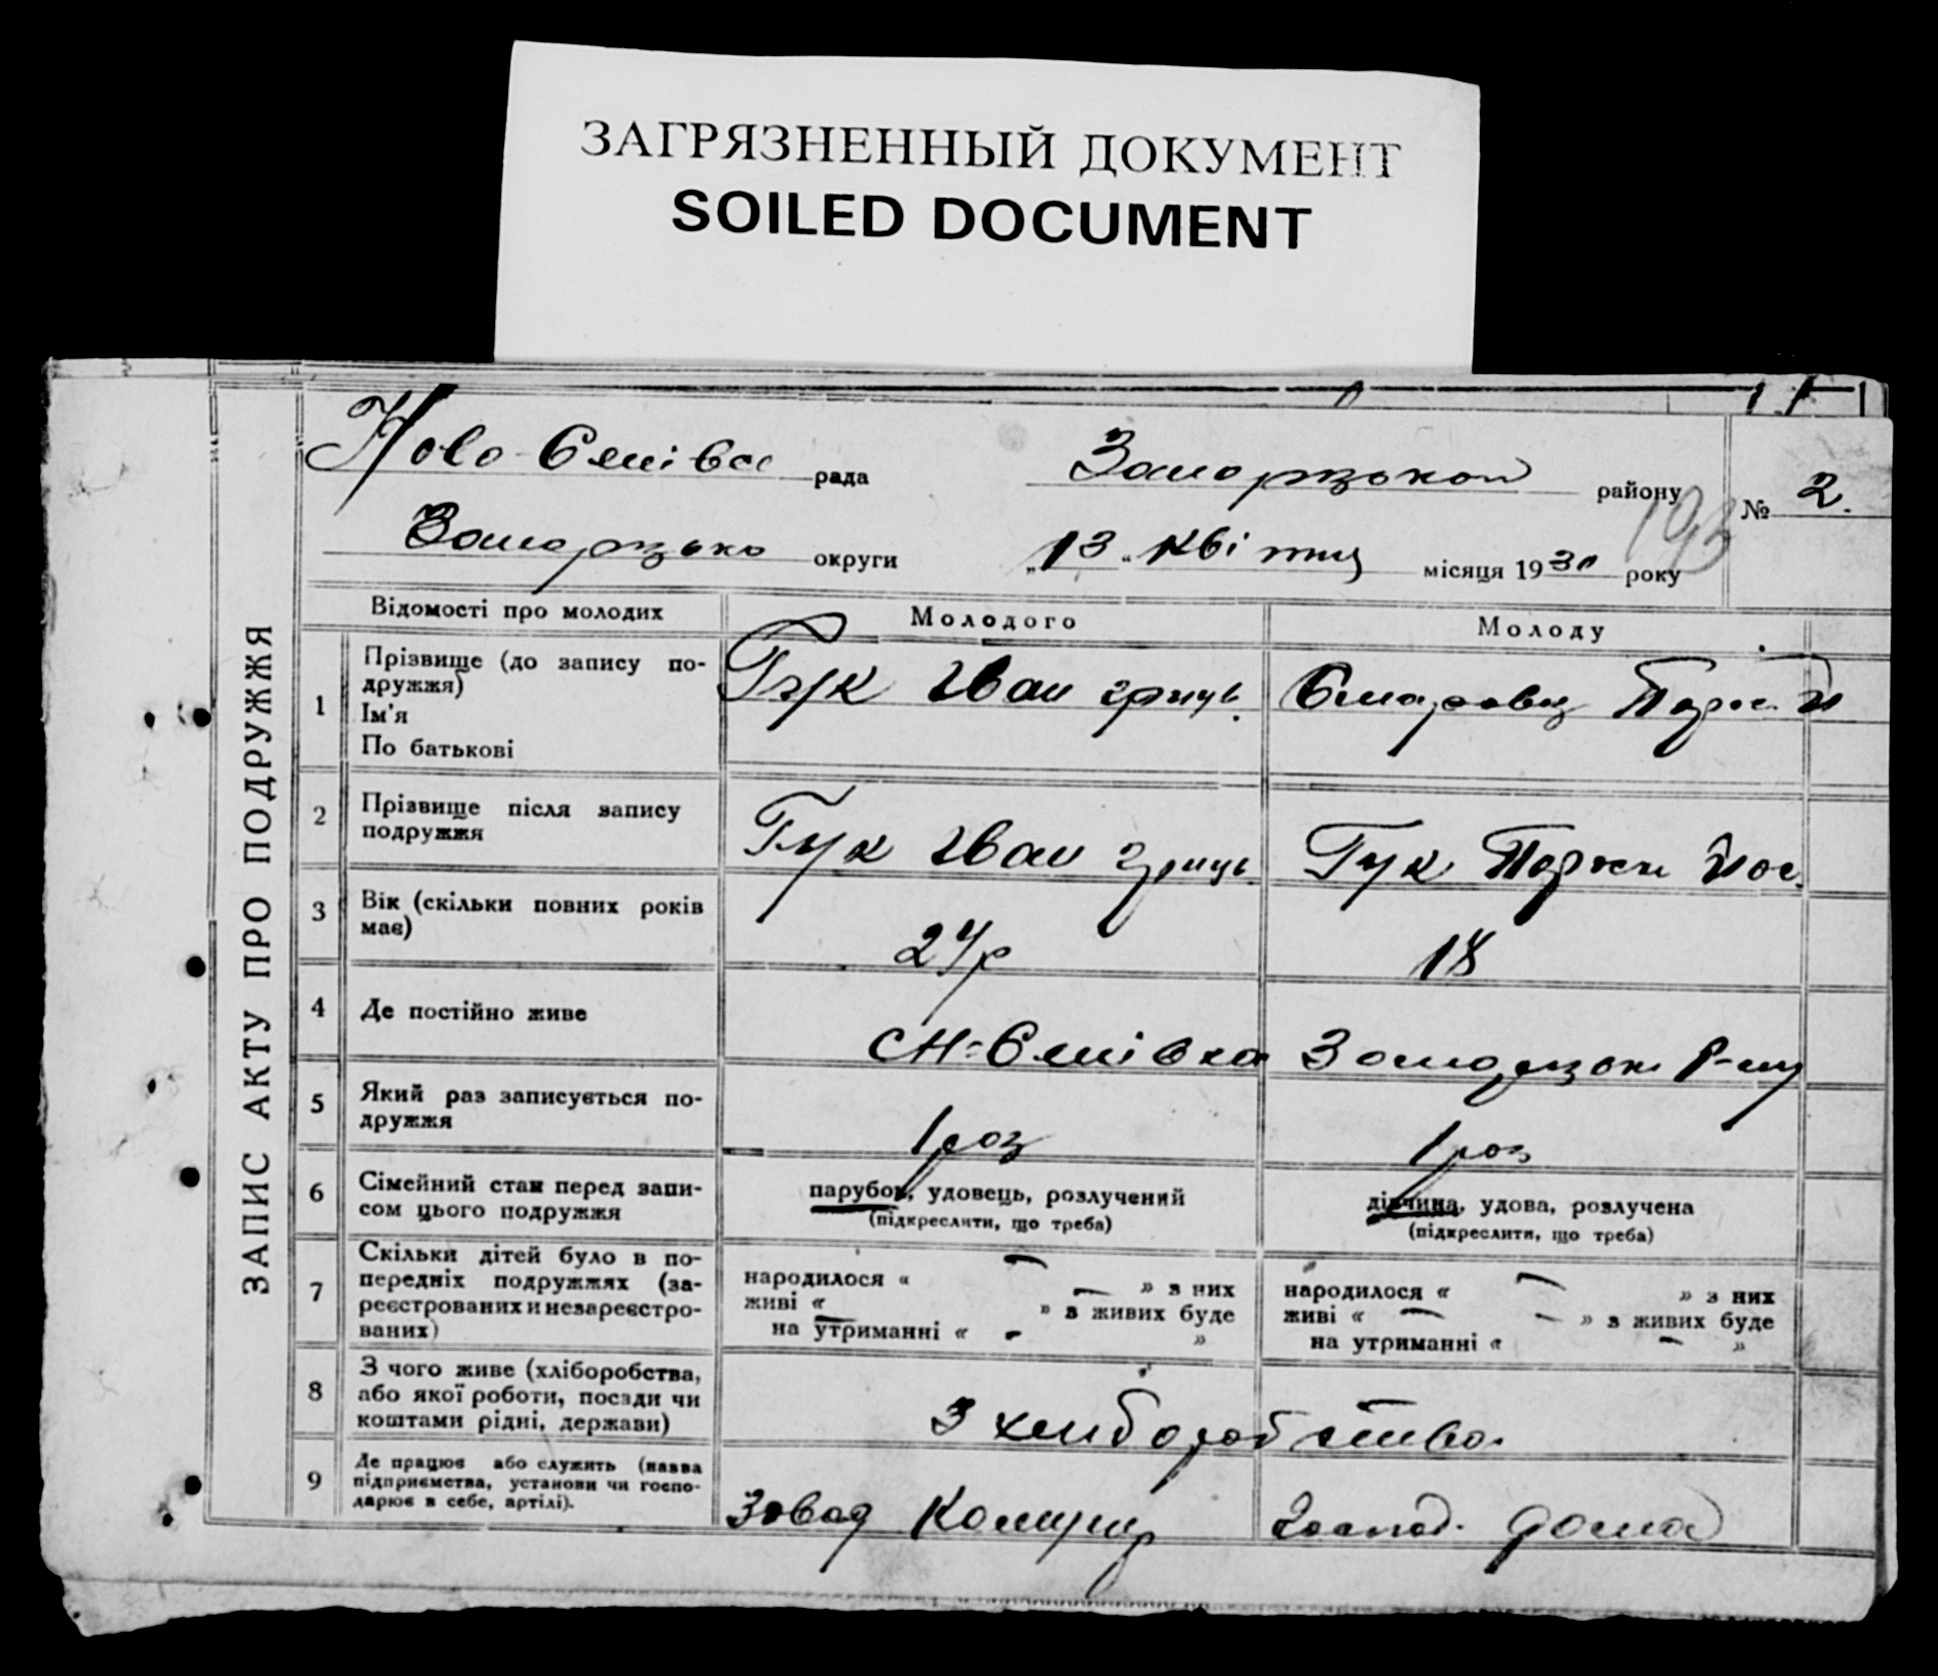 ЗАГРЯЗНЕННЫЙ ДОКУМЕНТ
SOILED DOCUMENT
ЗАПИС АКТУ ПРО ПОДРУЖЖЯ
рада
району
№ 2.
округи
„13“ Квітня місяця 1930 року
193
Відомості про молодих
Молодого
Молоду
1
Прізвище (до запису по-
дружжя)
Ім'я
По батькові
Гук Іван Гриць.
2
Прізвище після запису
подружжя
Гук Іван Гриць.
Гук Йос.
3
Вік (скільки повних років
має)
24р
18
4
Де постійно живе
5
Який раз записується по-
дружжя
1 раз
1 раз
6
Сімейний стан перед запи-
сом цього подружжя
парубок, удовець, розлучений
(підкреслити, що треба)
дівчина, удова, розлучена
(підкреслити, що треба)
7
Скільки дітей було в по-
передніх подружжях (за-
реєстрованих и незареєстро-
ваних)
народилося « — — » з них
живі « — » з живих буде
на утриманні « - »
народилося « — » з них
живі « — — » з живих буде
на утриманні « — »
8
З чого живе (хліборобства,
або якої роботи, посади чи
коштами рідні, держави)
З хлиборобства.
9
Де працює або служить (назва
підприємства, установи чи госпо-
дарює в себе, артілі).
Завод Комунар
Господ. дома